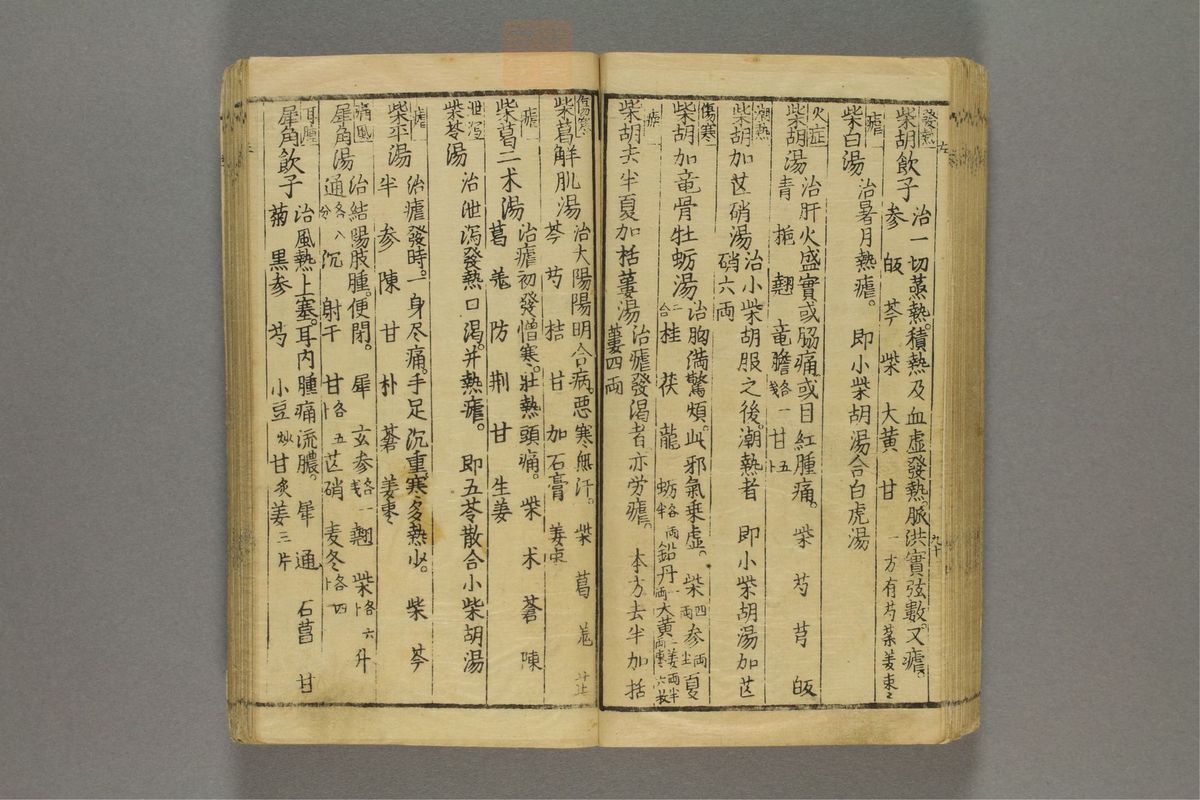 發熱
柴胡飲子 治一切蒸熱。積熱及血虛發熱。脈洪實弦數。又瘧。
參 皈 芩 柴 大黃 甘 一方有芍薬姜棗
瘧
柴白湯 治暑月熱瘧。 即小柴胡湯合白虎湯
火症
柴胡湯 治肝火盛實或脇痛。或目紅腫痛。 柴 芍 芎 皈
青 梔 翹 竜膽 各一戔 甘五卜
潮熱
柴胡加芒硝湯 治小柴胡服之後。潮熱者 即小柴胡湯加芒
硝六両
傷寒
柴胡加竜骨牡蛎湯 治胸満驚煩。此邪氣乗虚。 柴四両 参 夏
二合 桂 茯 龍 蛎 各両半 鉛丹一両 大黄二両 姜両半 棗六枚
瘧
柴胡去半夏加栝蔞湯 治瘧發渴者亦労瘧。 本方去半加栝
蔞四両
傷寒
柴葛解肌湯 治大陽陽明合病。悪寒無汗。 柴 葛 羗 芷
芩 芍 桔 甘 加石膏 姜棗
瘧
柴葛二术湯 治瘧初發憎寒。壯熱頭痛。 柴 术 蒼 陳
葛 羗 防 荆 甘 生姜
泄瀉
柴苓湯 治泄瀉發熱口渴。并熱瘧。 即五苓散合小柴胡湯
瘧
柴平湯 治瘧發時。一身尽痛。手足沉重。寒多熱少。 柴 芩
半 参 陳 甘 朴 蒼 姜棗
痛風
犀角湯 治結陽肢腫。便閉。 犀 玄参 各一戔 翹 柴 各六卜 升
通 各八分 沉 射干 甘 各五卜 芒硝 麦冬 各四卜
耳腫
犀角飲子 治風熱上塞。耳内腫痛流膿。 犀 通 石菖 甘
菊 黒参 芍 小豆炒 甘炙 姜三片